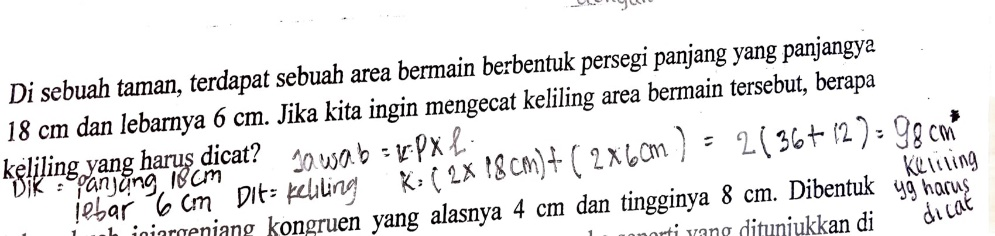 Di sebuah taman, terdapat sebuah area bermain berbentuk persegi panjang yang panjangya
18 cm dan lebarnya 6 cm. Jika kita ingin mengecat keliling area bermain tersebut, berapa
keliling yang harus dicat?
Jawab = K = P x L.
K = (2 x 18 cm) + (2 x 6 cm) = 2 (36 + 12) = 98 cm
Keliling
yg harus
di cat
Dik : Panjang 18 cm
lebar 6 cm
Dit = keliling
jajargenjang kongruen yang alasnya 4 cm dan tingginya 8 cm. Dibentuk
yang ditunjukkan di